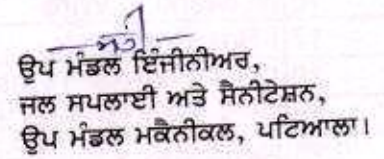 ਸਹੀ
ਉਪ ਮੰਡਲ ਇੰਜੀਨੀਅਰ,
ਜਲ ਸਪਲਾਈ ਅਤੇ ਸੈਨੀਟੇਸ਼ਨ,
ਉਪ ਮੰਡਲ ਮਕੈਨੀਕਲ, ਪਟਿਆਲਾ।